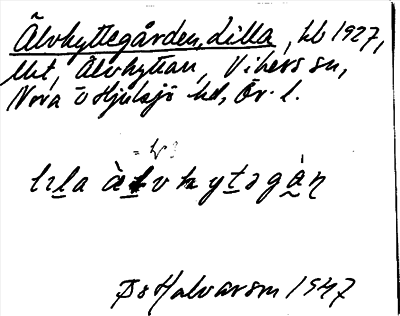 Älvhyttegården, Lilla, hb 1927,
Ukt, Älvhyttan, Vikers sn,
Nora o Hjulsjö hd, Ör. l.
lɩla àlvhytəgàṇ
Bo Halvarson 1947